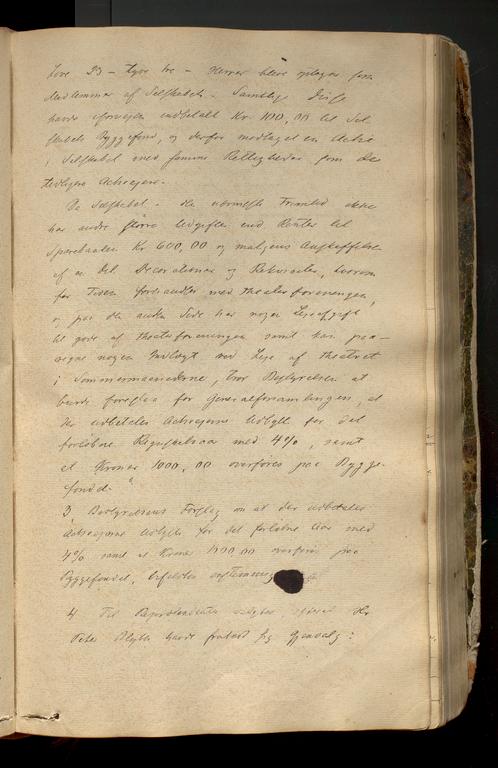 23 – tyve tre – Herrer bleve optagne som
Medlemmer af Selskabet. Samtlige disse
havde indbetalt Kr. 100,00 til Sel-
skabets Byggefond, og derfor modtaget en Actie
i Selskabet med samme Rettigheder som de
tidligere Actieejere.
Da Selskabet i den nærmeste Fremtid ikke
har andre større Udgifter end Renter til
Sparebanken Kr 600,00 og muligens Anskaffelse
af en Del Decorationer og Rekvisiter, hvorom
for Tiden forhandles med Theaterforeningen,
og paa den anden Side har nogen Leieafgift
til gode af Theaterforeningen samt kan paa-
regne nogen Indtægt ved Leie af Theatret
i Sommermaanederne, tror Bestyrelsen at
burde foreslaa for Generalforsamlingen, at
der udbetales Actieejerne Udbytte for det
forløbne Regnskabsaar med 4%, samt
at Kroner 1000,00 overføres paa Bygge-
fondet."
3 Bestyrelsens Forslag om at der udbetales
Actieejerne Udbytte for det forløbne Aar med
4% samt at Kroner 1000,00 overføres paa
Byggefondet, bifaldtes enstemmig
4. Til Repræsentanter valgtes, efterat Hr
Peter Blytt havde frabedt sig Gjenvalg: